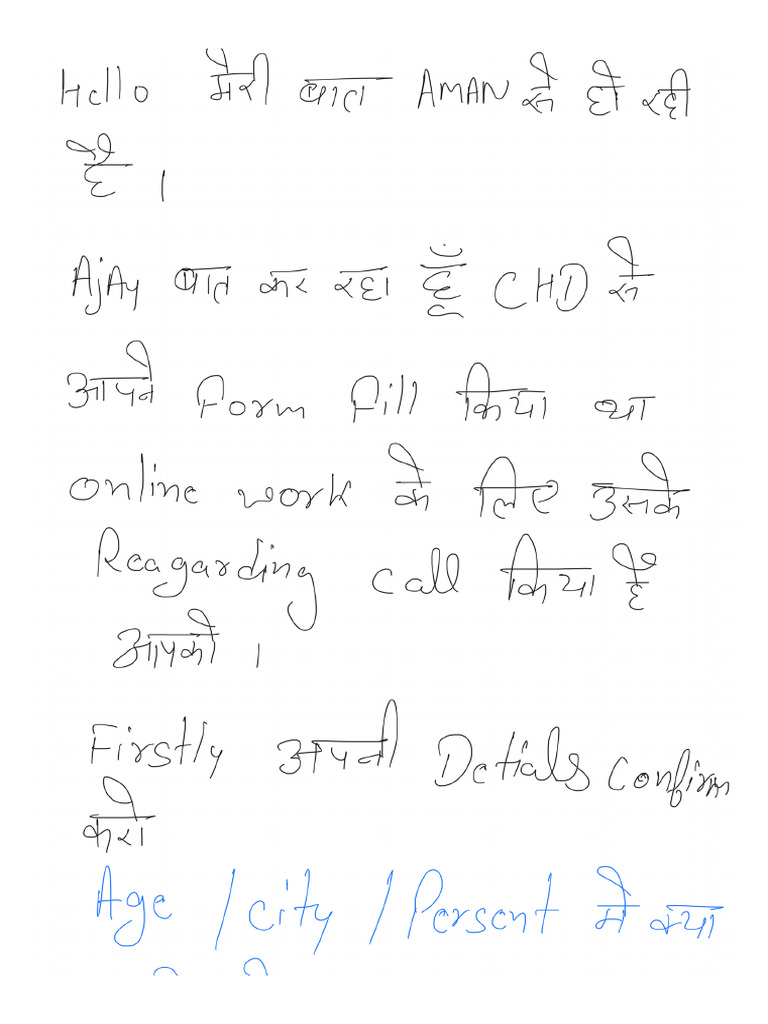 Hello मेरी बात AMAN से हो रही
है ।
AjAy बात कर रहा हूँ CHD से
आपने Form Fill किया था
online work के लिए उसके
Reagarding call किया है
आपको ।
Firstly अपनी Detials confirm
करो
Age / city / Persent में क्या